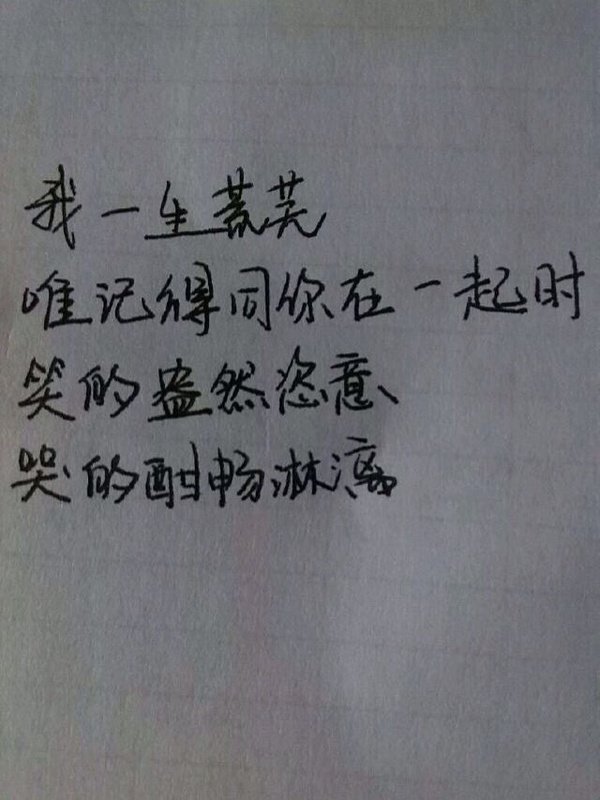 我一生荒芜
唯记得同你在一起时
笑的盎然恣意
哭的酣畅淋漓